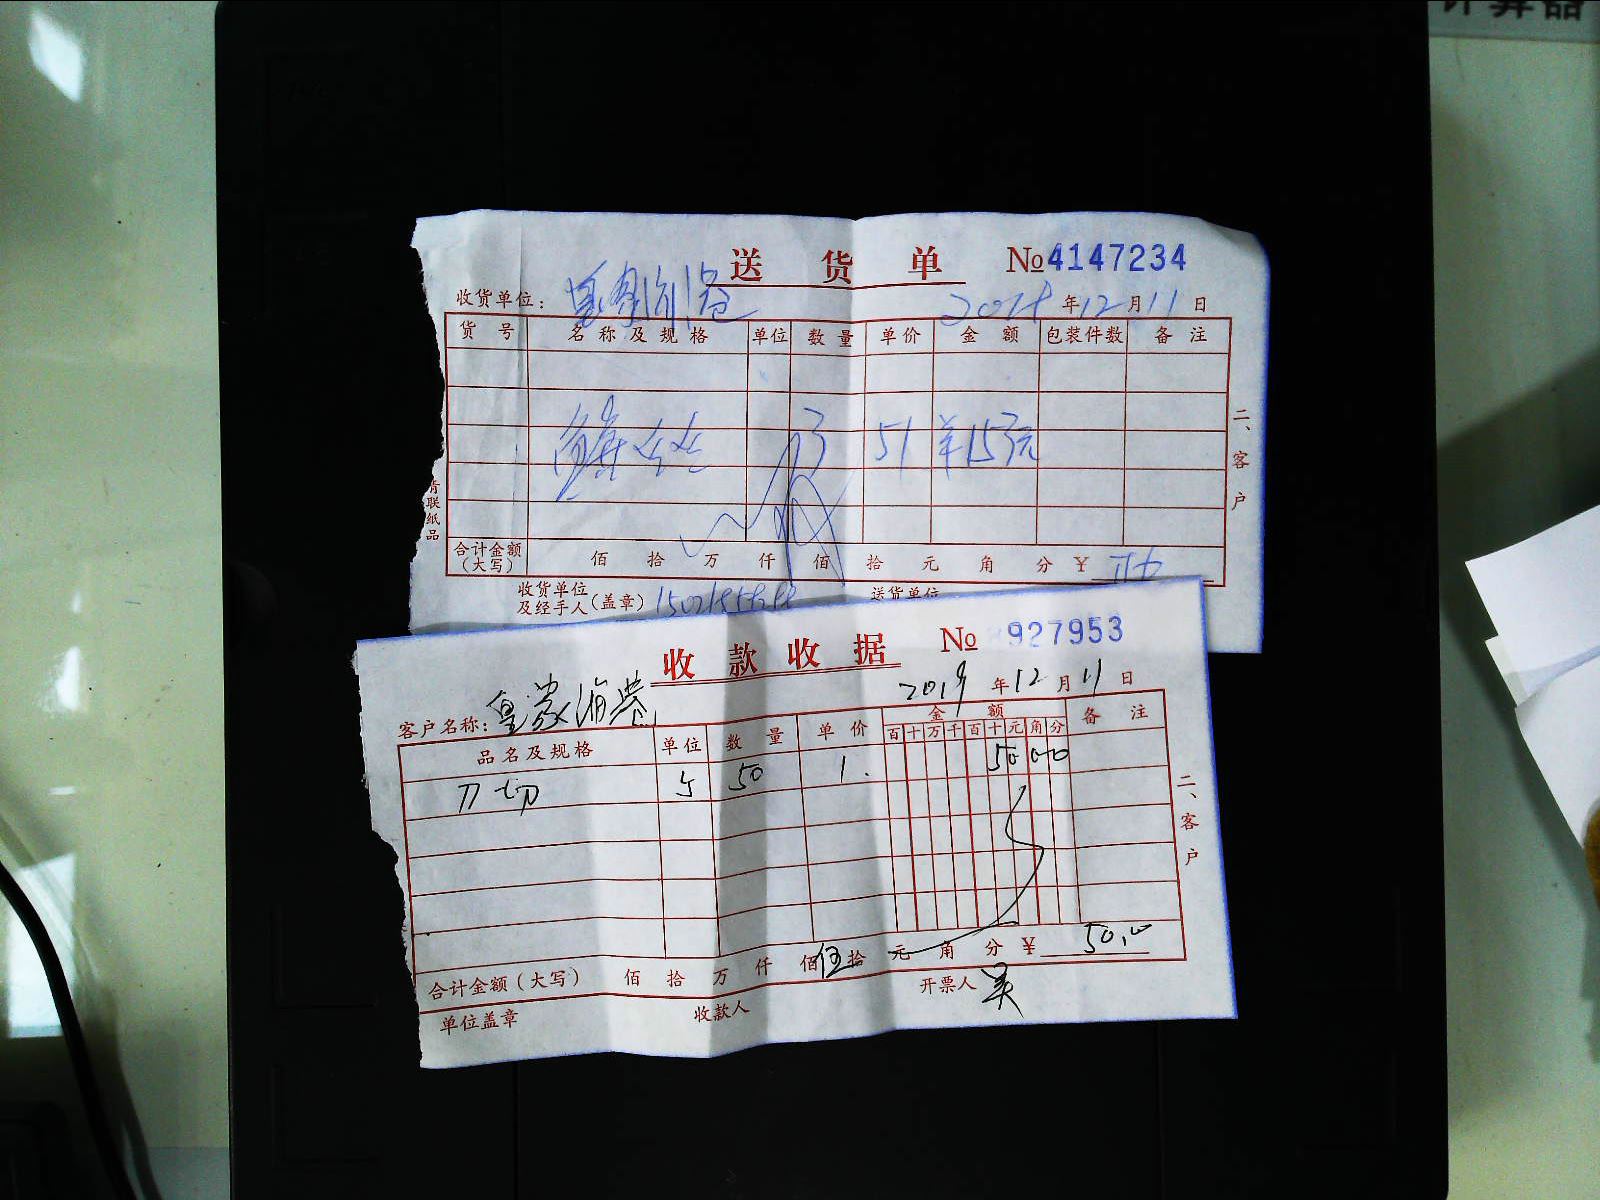 计算器
送货单 №4147234
收货单位: 年12月11日
货号 名称及规格 单位 数量 单价 金额 包装件数 备注
3 51 ¥153元
二、客户
青联纸品
合计金额(大写) 佰 拾 万 仟 佰 拾 元 角 分 ¥
收货单位及经手人(盖章) 送货单位
收款收据 № 927953
2019年12月11日
客户名称:
品名及规格 单位 数量 单价 金额 备注
百十万千百十元角分
刀切 50 1. 5000
二、客户
合计金额(大写) 佰 拾 万 仟 佰伍拾 元 角 分 ¥50.00
单位盖章 收款人 开票人